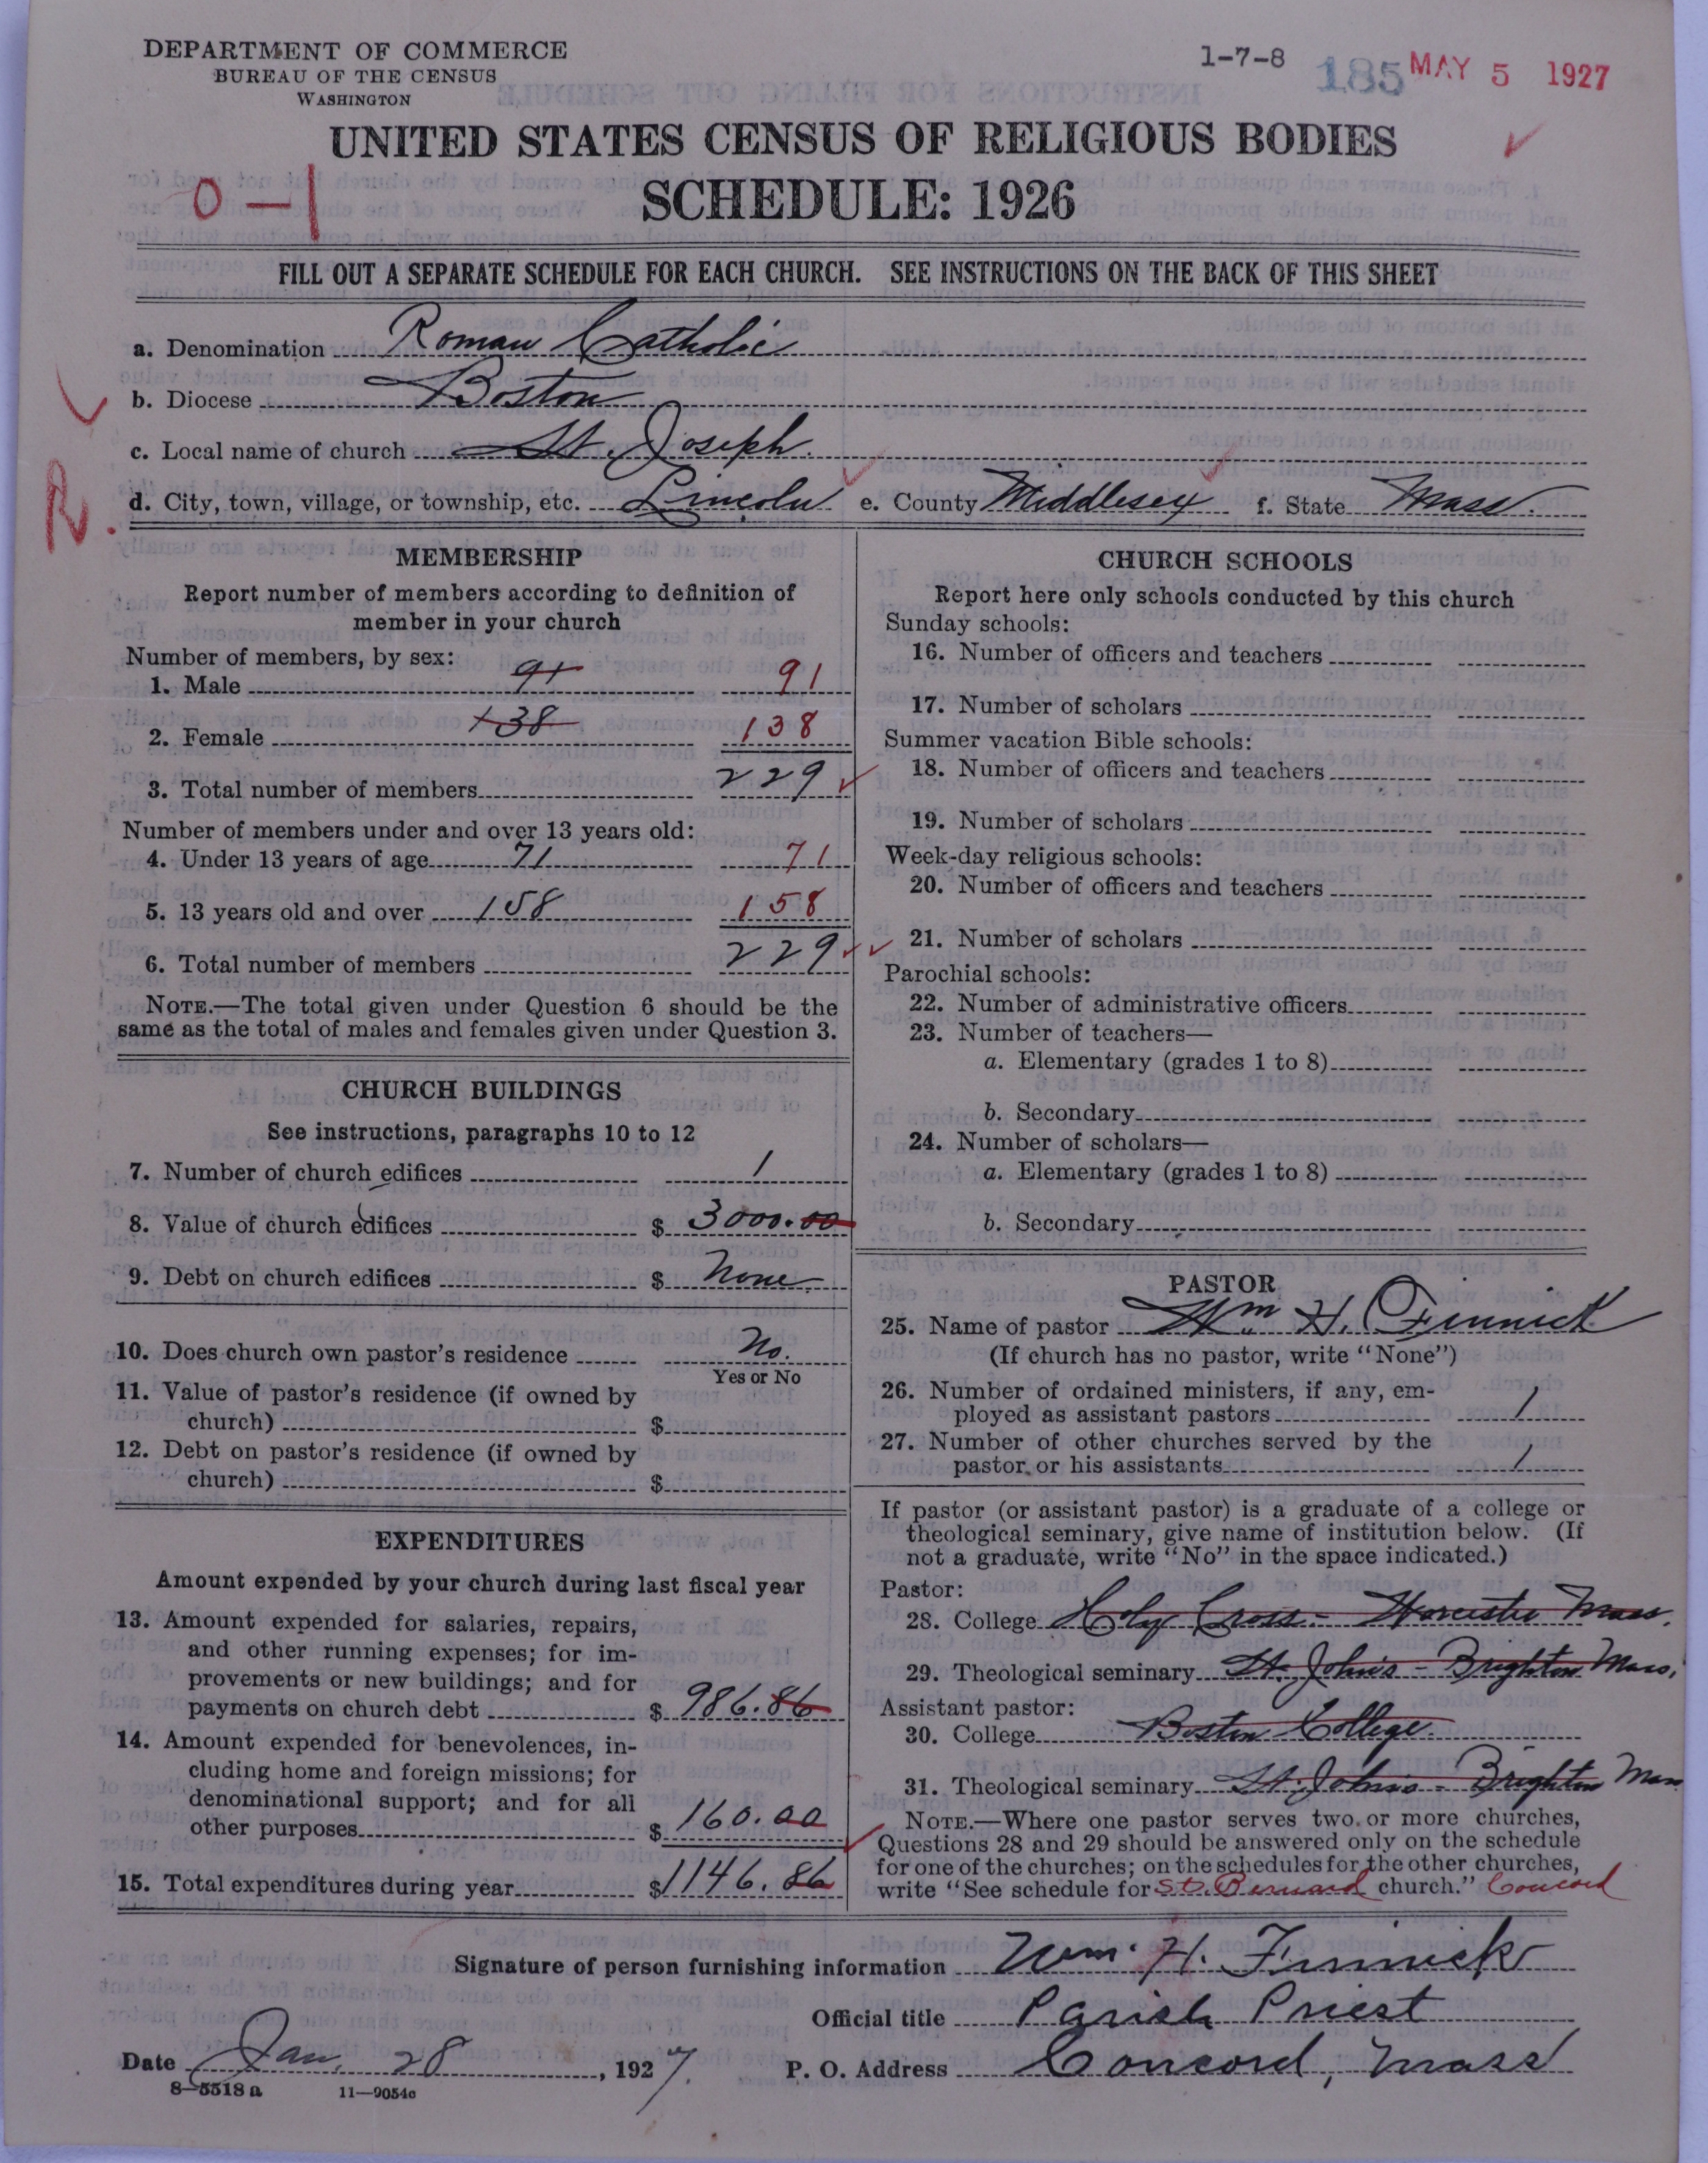 DEPARTMENT OF COMMERCE
BUREAU OF THE CENSUS
WASHINGTON
1-7-8 185 MAY 5 1927
UNITED STATES CENSUS OF RELIGIOUS BODIES
0-1 SCHEDULE: 1926
FILL OUT A SEPARATE SCHEDULE FOR EACH CHURCH. SEE INSTRUCTIONS ON THE BACK OF THIS SHEET
a. Denomination Roman Catholic
b. Diocese Boston
c. Local name of church St. Joseph.
R. d. City, town, village, or township, etc. Lincoln e. County Middlesex f. State Mass.
MEMBERSHIP
Report number of members according to definition of
member in your church
Number of members, by sex:
1. Male 91 91
2. Female 138 138
3. Total number of members 229
Number of members under and over 13 years old:
4. Under 13 years of age 71 71
5. 13 years old and over 158 158
6. Total number of members 229
NOTE.—The total given under Question 6 should be the
same as the total of males and females given under Question 3.
CHURCH BUILDINGS
See instructions, paragraphs 10 to 12
7. Number of church edifices 1
8. Value of church edifices $ 3000.00
9. Debt on church edifices $ None
10. Does church own pastor's residence No.
Yes or No
11. Value of pastor's residence (if owned by
church) $
12. Debt on pastor's residence (if owned by
church) $
EXPENDITURES
Amount expended by your church during last fiscal year
13. Amount expended for salaries, repairs,
and other running expenses; for im-
provements or new buildings; and for
payments on church debt $ 986.86
14. Amount expended for benevolences, in-
cluding home and foreign missions; for
denominational support; and for all
other purposes $ 160.00
15. Total expenditures during year $1146.86
CHURCH SCHOOLS
Report here only schools conducted by this church
Sunday schools:
16. Number of officers and teachers
17. Number of scholars
Summer vacation Bible schools:
18. Number of officers and teachers
19. Number of scholars
Week-day religious schools:
20. Number of officers and teachers
21. Number of scholars
Parochial schools:
22. Number of administrative officers
23. Number of teachers—
a. Elementary (grades 1 to 8)
b. Secondary
24. Number of scholars—
a. Elementary (grades 1 to 8)
b. Secondary
PASTOR
25. Name of pastor Wm H. Finnick
(If church has no pastor, write "None")
26. Number of ordained ministers, if any, em-
ployed as assistant pastors 1
27. Number of other churches served by the
pastor or his assistants 1
If pastor (or assistant pastor) is a graduate of a college or
theological seminary, give name of institution below. (If
not a graduate, write "No" in the space indicated.)
Pastor:
28. College Holy Cross - Worcester Mass.
29. Theological seminary St. John's - Brighton Mass.
Assistant pastor:
30. College Boston College
31. Theological seminary St. John's - Brighton Mass
NOTE.—Where one pastor serves two or more churches,
Questions 28 and 29 should be answered only on the schedule
for one of the churches; on the schedules for the other churches,
write "See schedule for St. Bernard church." Concord
Signature of person furnishing information Wm. H. Finnick
Official title Parish Priest
Date Jan. 28, 1927. P. O. Address Concord, Mass
8-5518 a 11-9054c